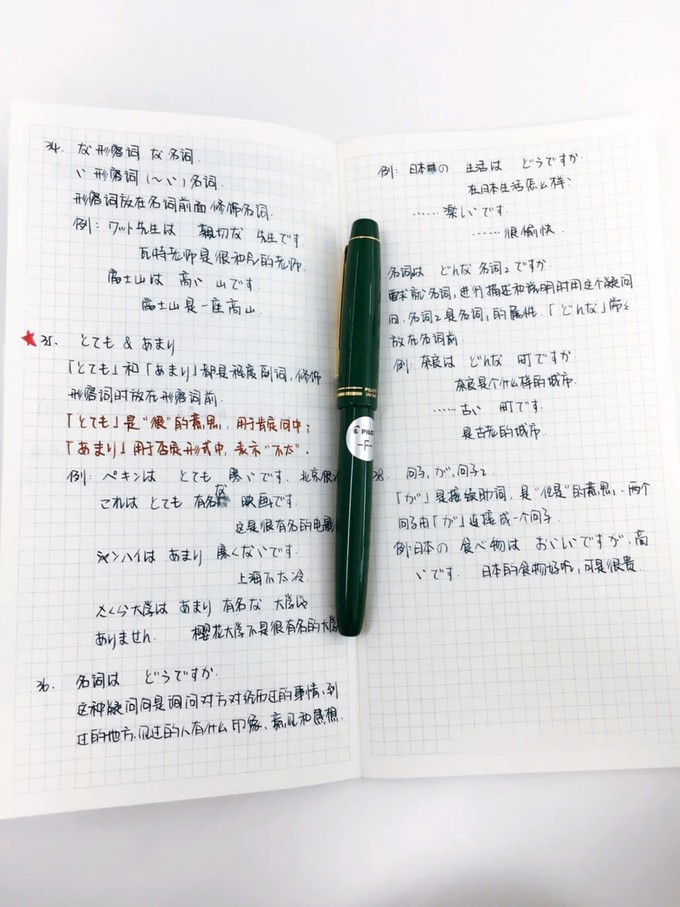 34. な形容词 な名词.
い形容词 (～い) 名词.
形容词放在名词前面 修饰名词.
例: ワット先生は 親切な 先生です
瓦特老师是很和的老师.
富士山は 高い 山です
富士山是一座高山
35. とても & あまり
「とても」和「あまり」都是程度副词, 修饰
形容词时放在形容词前.
「とても」是“很”的意思, 用于肯定句中;
「あまり」用于否定形式中, 表示“不太”.
例: ペキンは とても 寒いです. 北京很
これは とても 有名な 映画です.
这是很有名的电
シャンハイは あまり 寒くないです.
上海不太冷
さくら大学は あまり 有名な 大学じゃ
ありません. 樱花大学不是很有名的大学
36. 名词は どうですか.
这种疑问句是询问对方对经历过的事情, 到
过的地方, 见过的人有什么印象, 意见和感想.
例: 日本の 生活は どうですか
在日本生活怎么样
…… 楽しいです.
…… 很愉快.
名词は どんな 名词2 ですか
要求就名词, 进行描述和说明时用这个疑问
词. 名词2是名词, 的属性. 「どんな」常
放在名词前
例: 奈良は どんな 町ですか
奈良是个什么样的城市.
…… 古い 町です.
是古老的城市.
38. 句子, が, 句子2
「が」是接续助词, 是“但是”的意思. 两个
句子由「が」连接成一个句子
例: 日本の 食べ物は おいしいですが, 高
いです. 日本的食物好吃, 可是很贵.
PILOT
JAPAN
PILOT
-F-